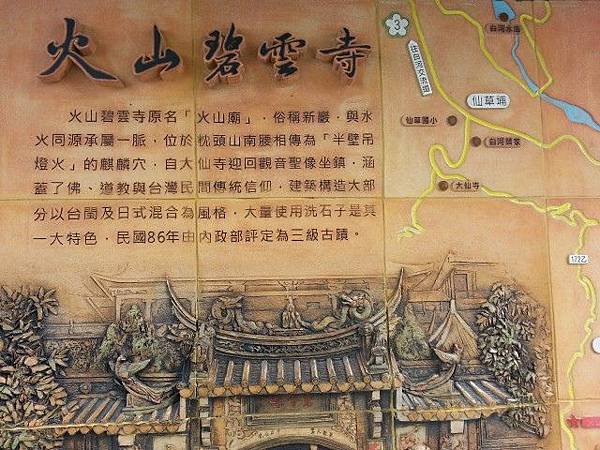 火山碧雲寺
火山碧雲寺原名「火山廟」，俗稱新巖，與水
火同源承屬一脈，位於枕頭山南腰相傳為「半壁吊
燈火」的麒麟穴，自大仙寺迎回觀音聖像坐鎮，涵
蓋了佛、道教與台灣民間傳統信仰，建築構造大部
分以台閩及日式混合為風格，大量使用洗石子是其
一大特色，民國86年由內政部評定為三級古蹟。
3
往白河交流道
白河水庫
仙草埔
仙草國小
大仙寺
172乙